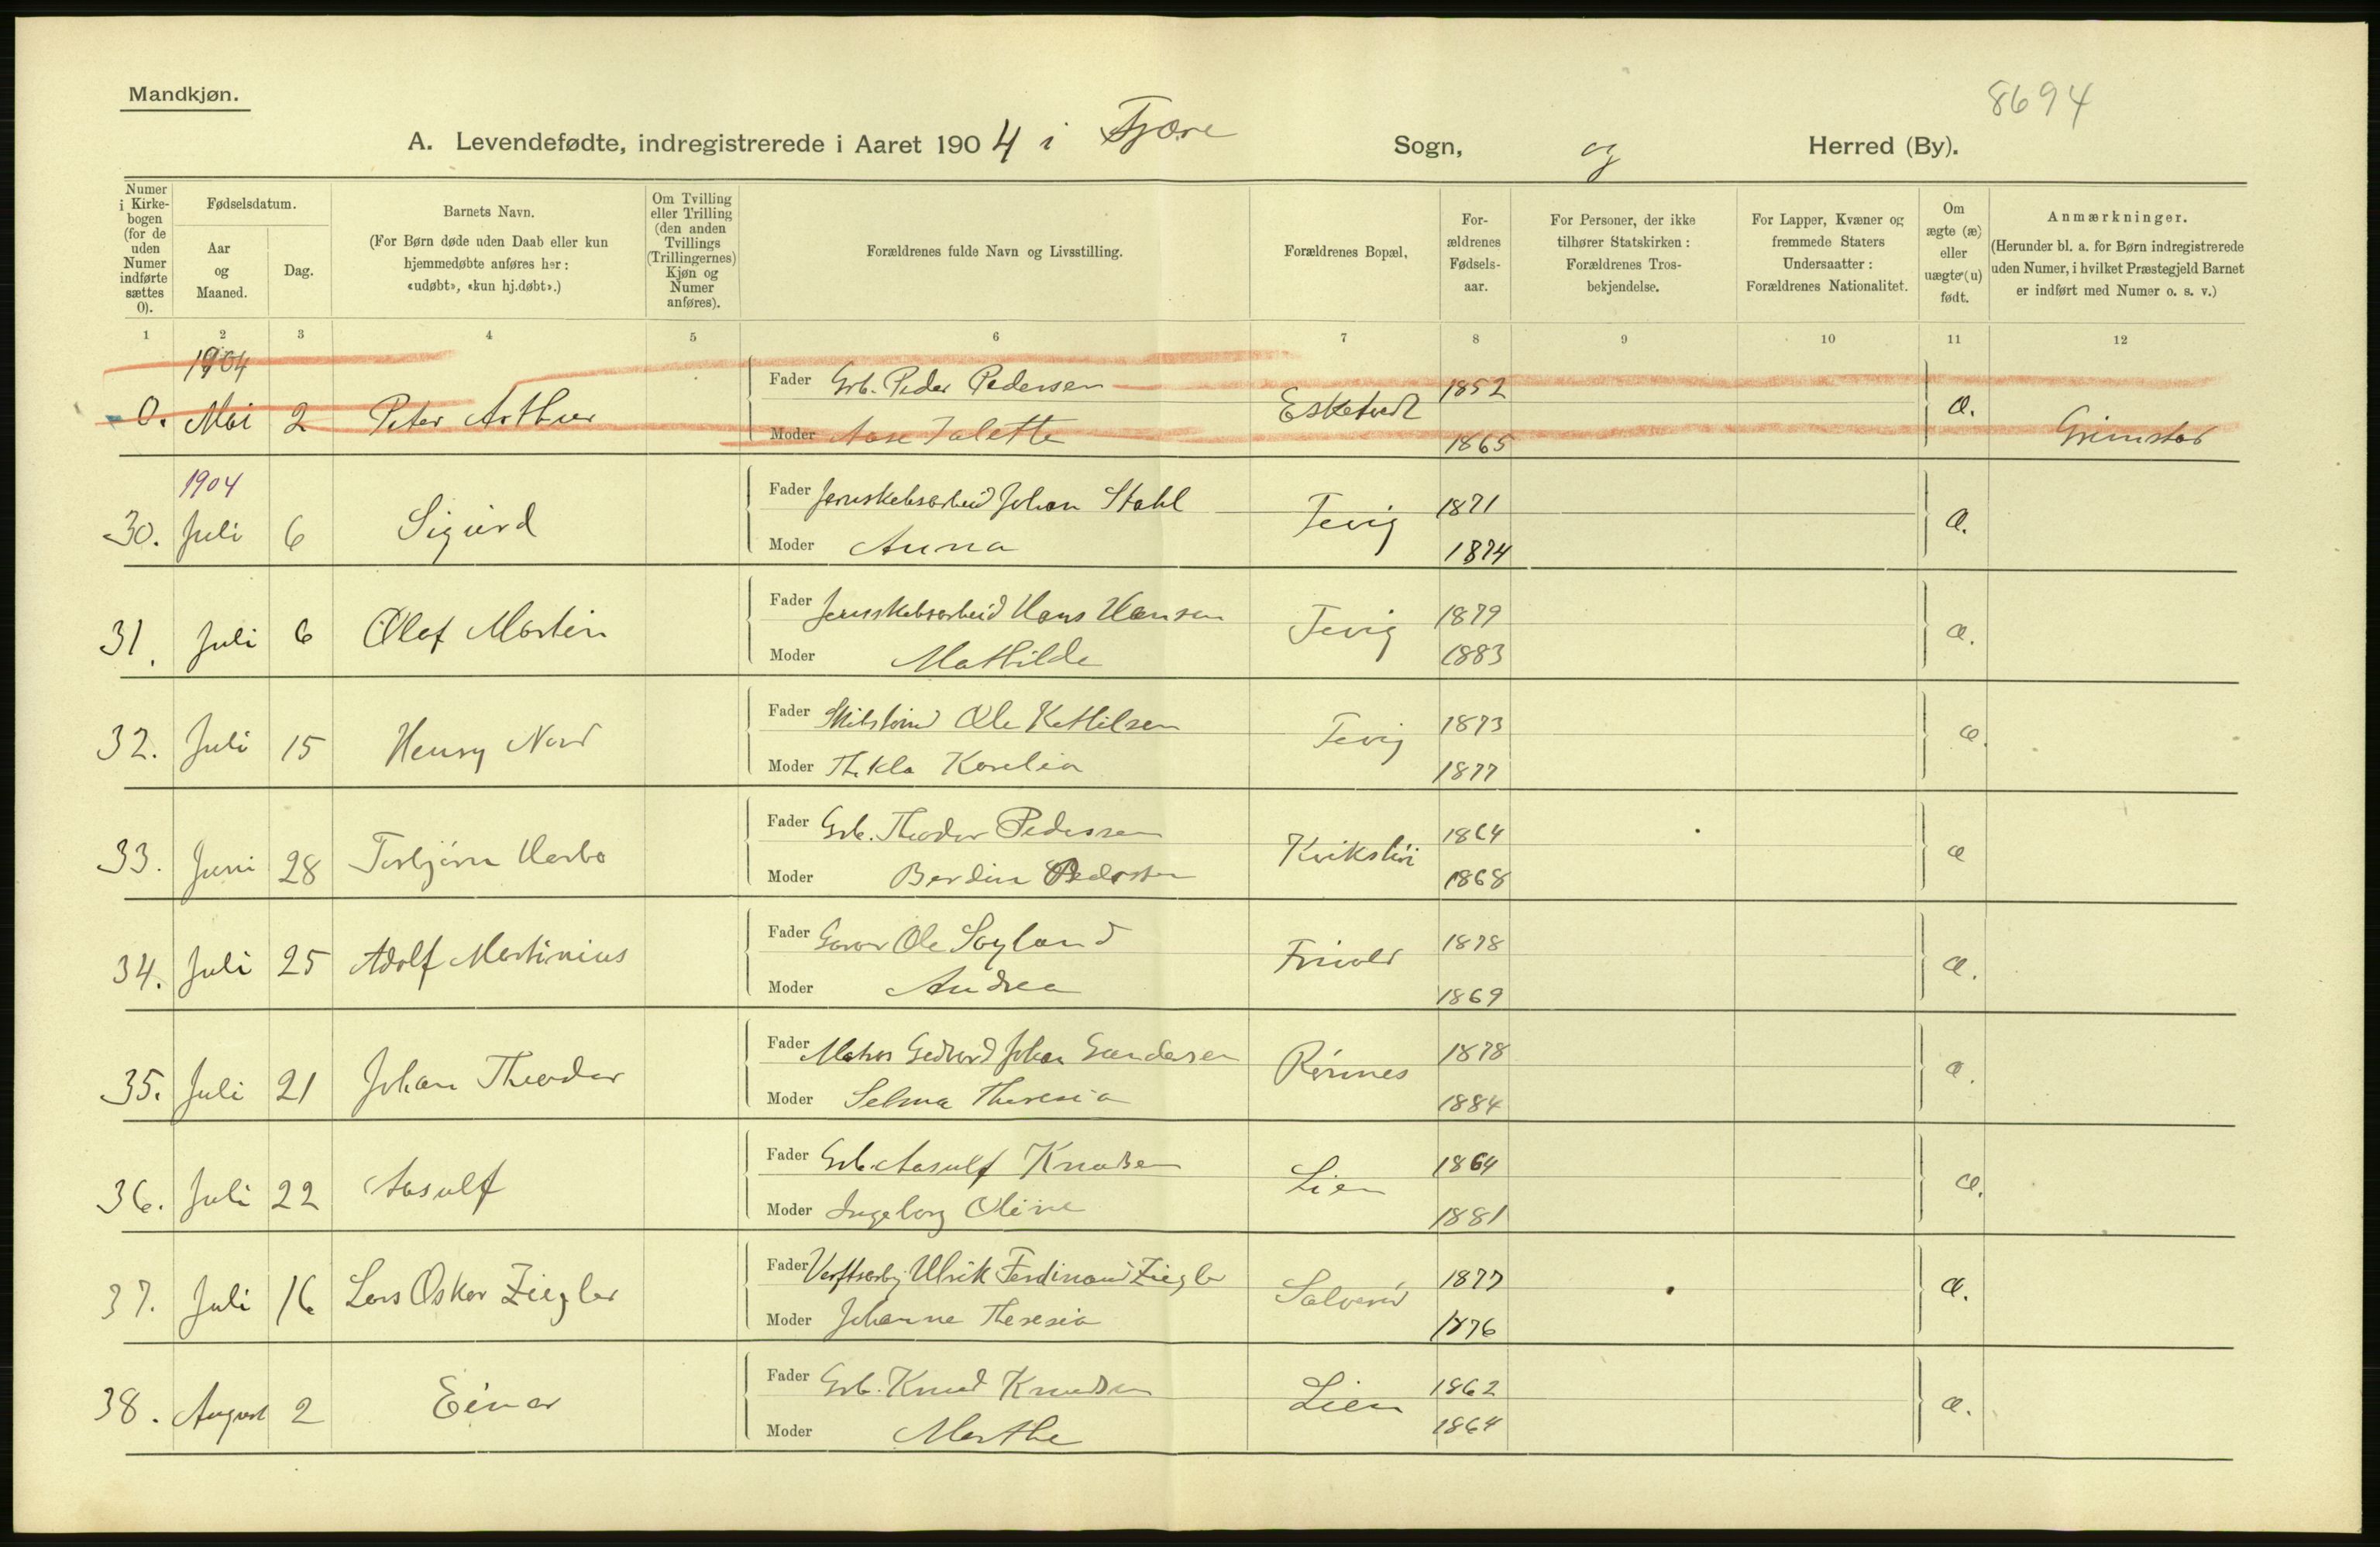 Mandkjøn.
8694
A. Levendefødte, indregistrerede i Aaret 1904 i Fjære Sogn, og Herred (By).
Numer i Kirkebogen (for de uden Numer indførte sættes 0).
Fødselsdatum.
Aar og Maaned.
Dag.
Barnets Navn.
(For Børn døde uden Daab eller kun hjemmedøbte anføres her: «udøbt», «kun hj.døbt».)
Om Tvilling eller Trilling (den anden Tvillings (Trillingernes) Kjøn og Numer anføres).
Forældrenes fulde Navn og Livsstilling.
Forældrenes Bopæl,
Forældrenes Fødselsaar.
For Personer, der ikke tilhører Statskirken: Forældrenes Trosbekjendelse.
For Lapper, Kvæner og fremmede Staters Undersaatter: Forældrenes Nationalitet.
Om ægte (æ) eller uægte (u) født.
Anmærkninger.
(Herunder bl. a. for Børn indregistrerede uden Numer, i hvilket Præstegjeld Barnet er indført med Numer o. s. v.)
1 2 3 4 5 6 7 8 9 10 11 12
1904
0. Mai 2 Peter Arthur Fader Grb. Peder Pedersen Esketvedt 1852 æ. Grimstad
Moder Aase Talette 1865
1904
30. Juli 6 Sigurd Fader Jernskibsarbeid Johan Stahl Fevig 1871 æ.
Moder Anna 1874
31. Juli 6 Olaf Martin Fader Jernskibsarbeid Hans Hansen Fevig 1879 æ.
Moder Mathilde 1883
32. Juli 15 Henry Nord Fader Ole Kettilsen Fevig 1873 æ.
Moder Thekla Karelia 1877
33. Juni 28 Torbjørn Herbo Fader Grb. Theodor Pedersen 1864 æ
Moder Berdine Pedersen 1868
34. Juli 25 Adolf Martinius Fader Garver Ole Søyland Frivold 1878 æ.
Moder Andrea 1869
35. Juli 21 Johan Theodor Fader Matros Johan Gundersen Rønnes 1878 æ.
Moder Selma Theresia 1884
36. Juli 22 Aasulf Fader Grb. Aasulf Knudsen Lien 1864 æ.
Moder Ingeborg Oline 1881
37. Juli 16 Lars Oskar Ziegler Fader Verftsarb. Ulrik Ferdinand Ziegler 1877 æ.
Moder Johanne Theresia 1876
38. August 2 Einar Fader Grb. Knud Knudsen Lien 1862 æ.
Moder Marthe 1864